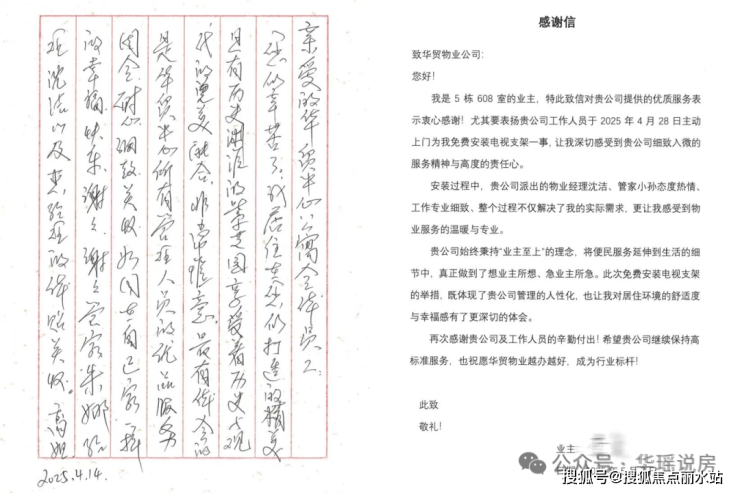 亲爱的华贸半山公寓全体员工:
您们辛苦了!我居住在您们打造的精美
具有历史渊源的 园享受着历史与现
代的完美融合,非常惬意。最有体会的
是华贸半山所有管理人员的优品服务
周全、耐心、细致、关照,如同在自己家一样
的幸福、快乐。谢谢!谢谢管家朱娜、经
理沈洁以及 经理的体贴关照。高姐
2025.4.14.
感谢信
致华贸物业公司:
您好!
我是 5 栋 608 室的业主,特此致信对贵公司提供的优质服务表
示衷心感谢! 尤其要表扬贵公司工作人员于 2025 年 4 月 28 日主动
上门为我免费安装电视支架一事,让我深切感受到贵公司细致入微的
服务精神与高度的责任心。
安装过程中,贵公司派出的物业经理沈洁、管家小孙态度热情、
工作专业细致、整个过程不仅解决了我的实际需求,更让我感受到物
业服务的温暖与专业。
贵公司始终秉持“业主至上”的理念,将便民服务延伸到生活的细
节中,真正做到了想业主所想、急业主所急。此次免费安装电视支架
的举措,既体现了贵公司管理的人性化,也让我对居住环境的舒适度
与幸福感有了更深切的体会。
再次感谢贵公司及工作人员的辛勤付出! 希望贵公司继续保持高
标准服务,也祝愿华贸物业越办越好,成为行业标杆!
此致
敬礼!
业主
公众号·华瑶说房
搜狐号@搜狐焦点丽水站